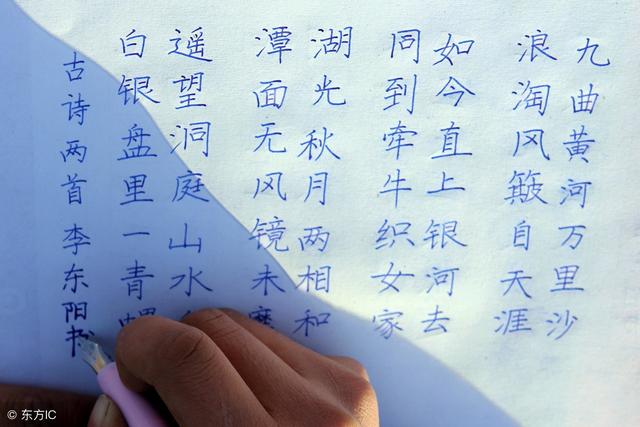 九曲黄河万里沙
浪淘风簸自天涯
如今直上银河去
同到牵牛织女家
湖光秋月两相和
潭面无风镜未磨
遥望洞庭山水
白银盘里一青螺
古诗两首李东阳书
© 东方IC